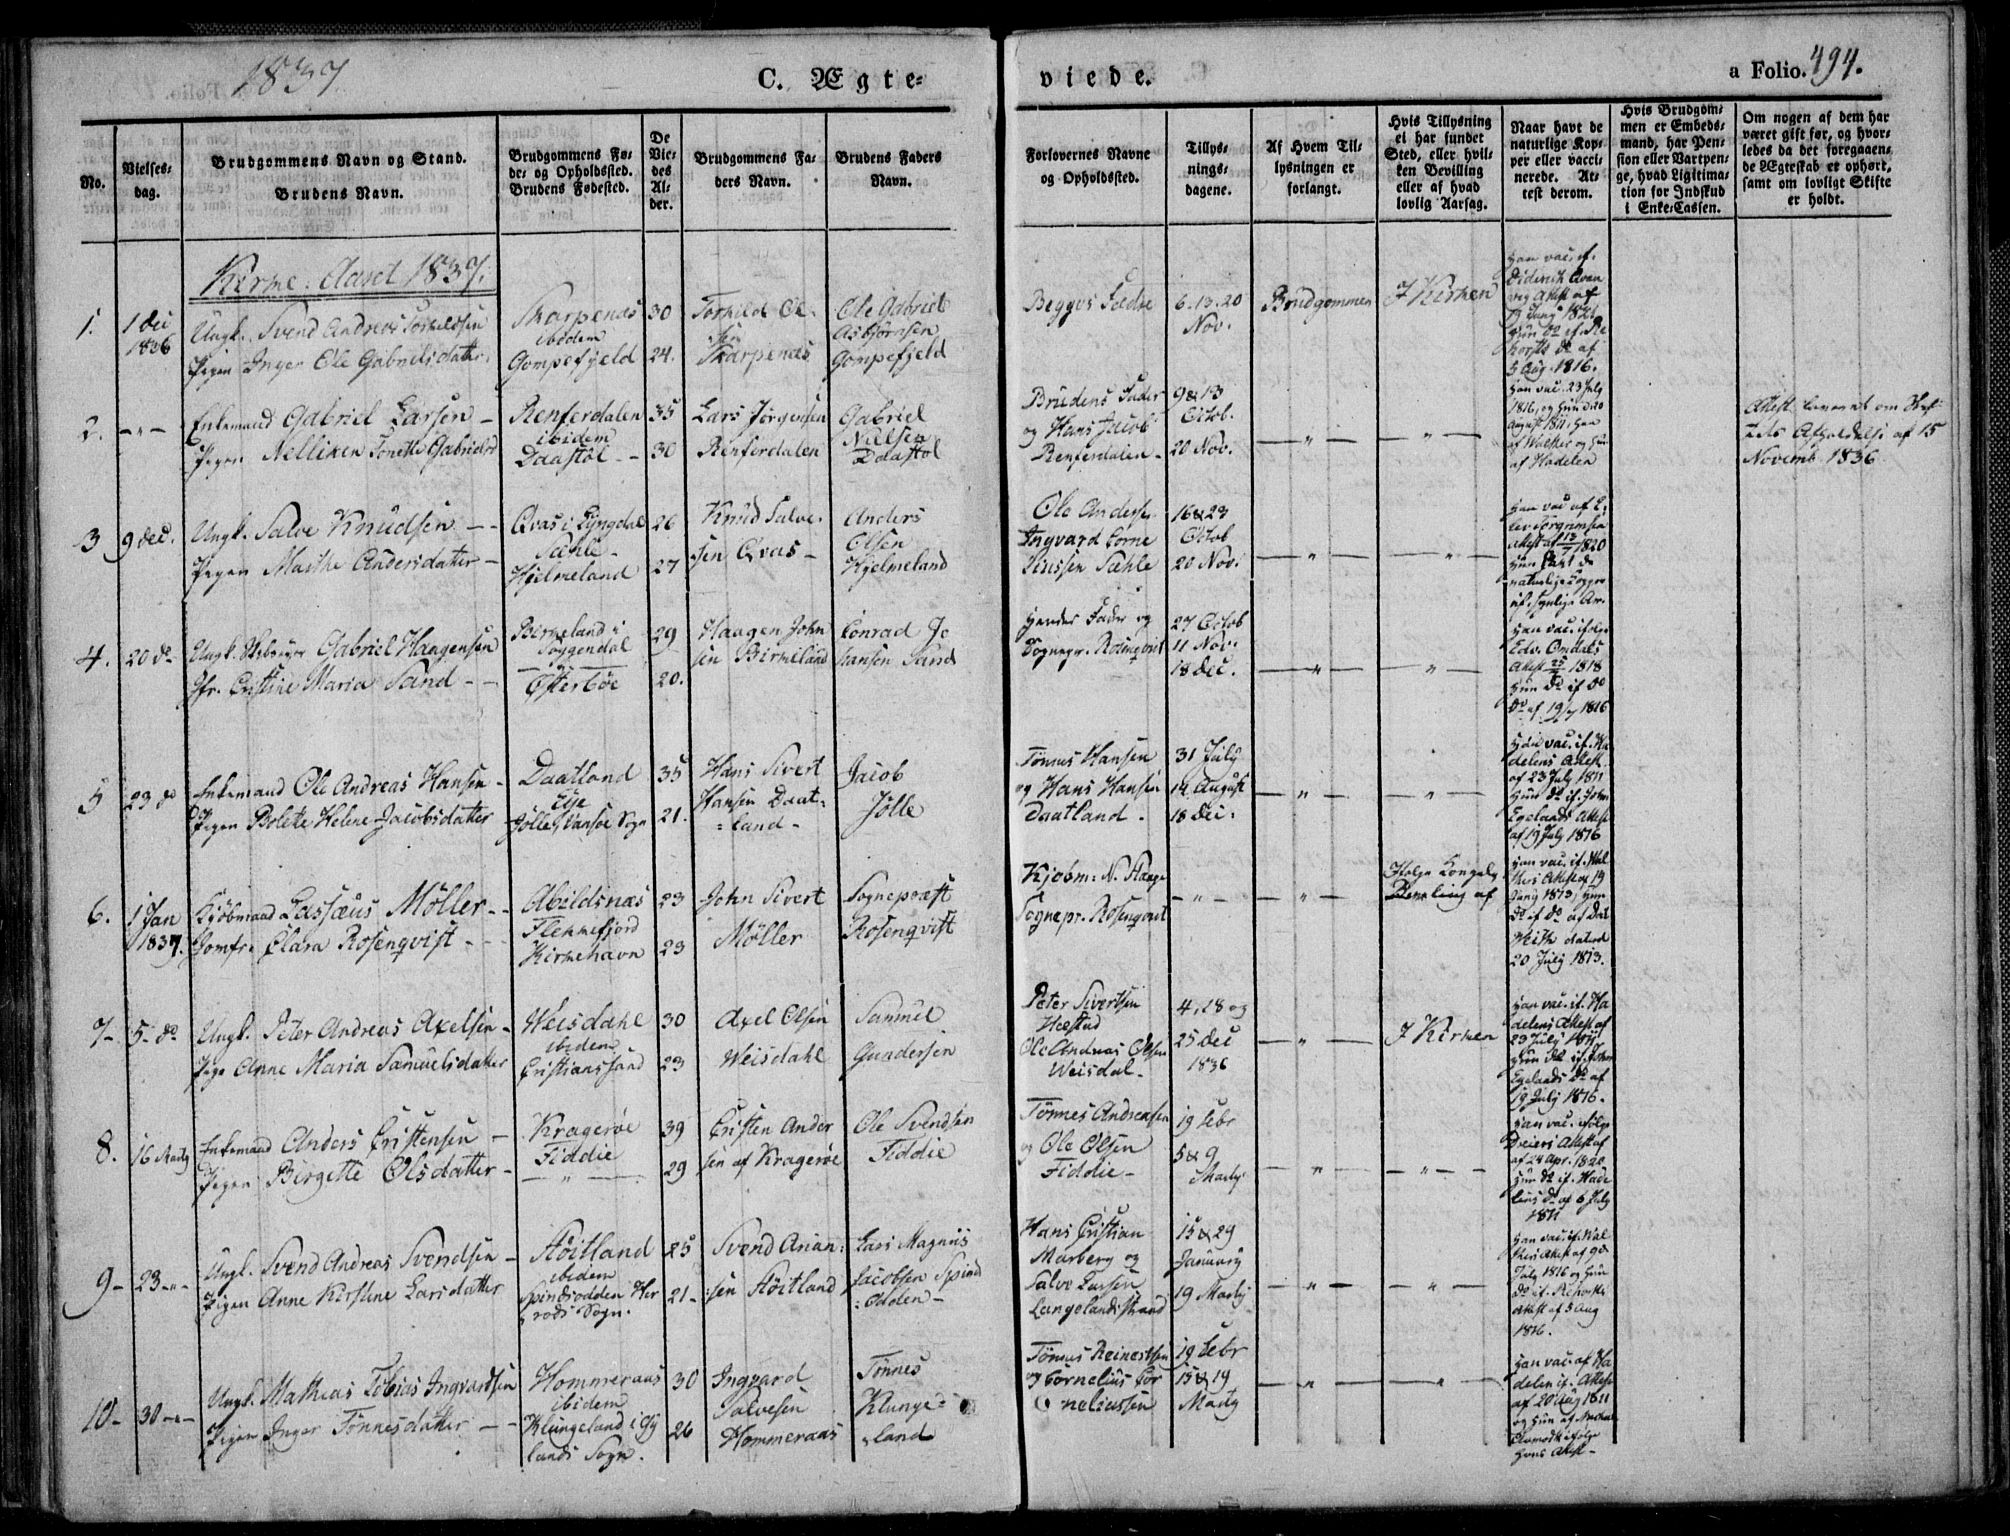 1837
C. Ægte=
viede.
a Folio. 494.
No.
Vielses=
dag.
Brudgommens Navn og Stand.
Brudens Navn.
Brudgommens Fø=
de= og Opholdssted.
Brudens Fødested.
De
Vie=
des
Al=
der.
Brudgommens Fa=
ders Navn.
Brudens Faders
Navn.
Forlovernes Navne
og Opholdssted.
Tillys=
nings=
dagene.
Af Hvem Til=
lysningen er
forlangt.
Hvis Tillysning
ei har fundet
Sted, eller hvil=
ken Bevilling
eller af hvad
lovlig Aarsag.
Naar havt de
naturlige Kop=
per eller vacci=
nerede. At=
test derom.
Hvis Brudgom=
men er Embeds=
mand, har Pen=
sion eller Vartpen=
ge, hvad Ligitima=
tion for Indskud
i Enke=Cassen.
Om nogen af dem har
været gift før, og hvor=
ledes da det foregaaen=
de Ægteskab er ophørt,
samt om lovligt Skifte
er holdt.
Kirke=Aaret 1837.
1.
1 Dec
1836
Ungk. Svend Andreas Torkildsen
Pigen Inger Ole Gabrielsdatter
Skarpenes
ibidem
Gompefjeld
30
24.
Torkild Ol=
sen
Skarpenes
Ole Gabriel
Asbjørnsen
Gompefjeld
Begges Fædre
6. 13. 20
Nov.
Brudgommen
I Kirken
Han vac. if.
Diderich
Attest af
1821
Hun do if.
af
5 Aug. 1816.
2.
Enkemand Gabriel Larsen
Pigen Nelliken Tonette Gabrielsd
Renferdalen
ibidem
Daastøl
35
30
Lars Jørgensen
Renferdalen
Gabriel
Nielsen
Daastøl
Brudens Fader
og Hans Jacob
Renferdalen
9 & 13
Octob.
20 Nov.
Han vac. 23 July
1816, og Hun dito
August 1811, Han
af Walker og Hun
af Hadelen
Attest om Skif
tets Afholdelse af 15
Novemb. 1836
3
9 Dec.
Ungk. Salve Knudsen
Pigen Marthe Andersdatter
Qvas i Lyngdal
Sæhle
Hjelmeland
26
27
Knud Salve=
sen Qvas
Anders
Olsen
Hjelmeland
Ole Anderse
Ingvard Corne
liussen Sæhle
16 & 23
Octob
20 Nov.
Han vac af
Attest af 13/7 1820
Hun havt de
naturlige Kopper
if. synlige Ar.
4.
20 do
Ungk. Gabriel Haagensen
Jfr. Cristine Maria Sand
Birkeland i
Søggendal
Østerbøe
29
20.
Haagen John
sen Birkeland
Conrad Jo
hansen Sand
Hendes Fader og
Sognepr. Rosenqvist
27 Octob
11 Nov.
18 Dec.
Han vac. ifølge
Edv. Omdals
Attest 25/ 1818
Hun do if do
do af 19/7 1816
5
23 do
Enkemand Ole Andreas Hansen
Pigen Bolette Helene Jacobsdatter
Daatland
Eije
Jølle, Vansøe Sogn
35
21.
Hans Sivert
Hansen Daat=
land
Jacob
Jølle
Tønnes Hansen
og Hans Hansen
Daatland.
31 July
14 August
18 Dec.
Han vac. if. Ha
delens Attest
af 23 July 1811
Hun do if. John
Egelands Attest
af 19 July 1816
6.
1 Jan
1837.
Kjøbmand Lassæus Møller
Jomfr. Clara Rosenqvist
Abildsnæs
Flekkefjord
Kirkehavn
23
23
John Sivert
Møller
Sognepræst
Rosenqvist
Kjøbm: N. Stange
Sognepr. Rosenqvist
Ifølge Kongelig
Bevilling af
Han vac. if. Wal
kers Attest af 19
Juny 1813, Hun
do if do af
dateret
20 July 1813.
7
5 do
Ungk. Peter Andreas Axelsen
Pige Anne Maria Samuelsdatter
Weisdahl
ibidem
Cristianssand
30
23
Axel Olsen
Weisdahl
Samuel
Gundersen
Peter Sivertsen
Hæstad
Ole Andreas Olsen
Weisdal
4, 18 og
25 Dec
1836
I Kirken
Han vac. if. Ha
delens Attest af
23 July 1811
Hun do if. John
Egelands do af
19 July 1816.
8.
16 Marty
Enkemand Anders Cristensen
Pigen Birgitte Olsdatter
Kragerøe
Fiddie
39
29
Cristen Ander
sen af Kragerøe
Ole Svendsen
Fiddie
Tønnes Andreasen
og Ole Olsen
Fiddie
19 Febr
5 & 9
Marty
Han vac. ifølge
Attest af
af 24 Apr. 1820
Hun do if. Hade
lens do af 6 July
1811
9
23
Ungk. Svend Andreas Svendsen
Pigen Anne Kirstine Larsdatter
Støitland
ibidem
Spindsodden Her
rods Sogn.
25
21
Svend Arian=
sen Støitland
Lars Magnus
Jacobsen Spind
odden
Hans Cristian
Marberg og
Salve Larsen
Langelandsstrand
15 & 29
January
19 Marty
Han vac. if. Wal
kers Attest af 90
July 1816 og Hun
do if. Rehorks
Attest af 5 Aug
1816.
10
30
Ungk. Mathias Tobias Ingvardsen
Pigen Inger Tønnesdatter
Hommeraas
ibidem
Klungeland i Gy
lands Sogn.
30
26
Ingvard
Salvesen
Hommeraas
Tønnes
Klunge=
land
Tønnes Reinertsen
og Cornelius Cor
neliussen
19 Febr
15 & 19
Marty
Han vac. af Ha
delen if. Attest
af 20 Aug 1811
og Hun af
ifølge
Hans Attest